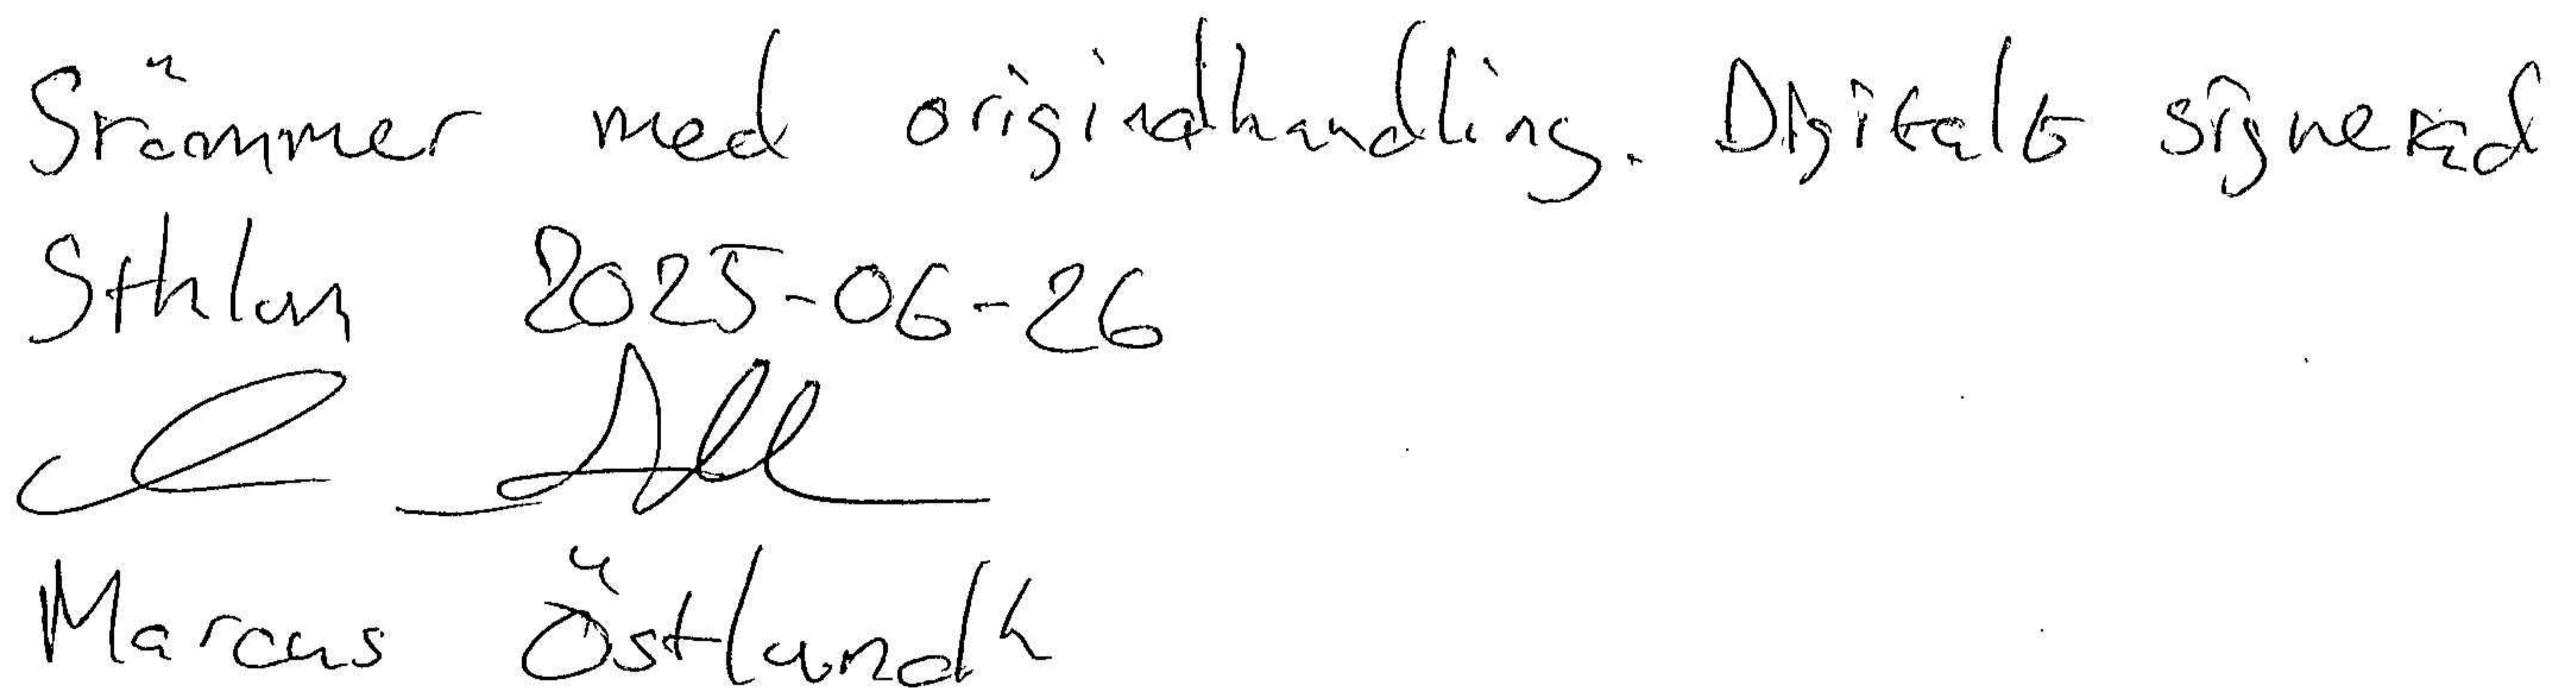 Srämmer med originalhandling. Digitalt signerad
Sthlm 2025-06-26
Marcus Östlundh